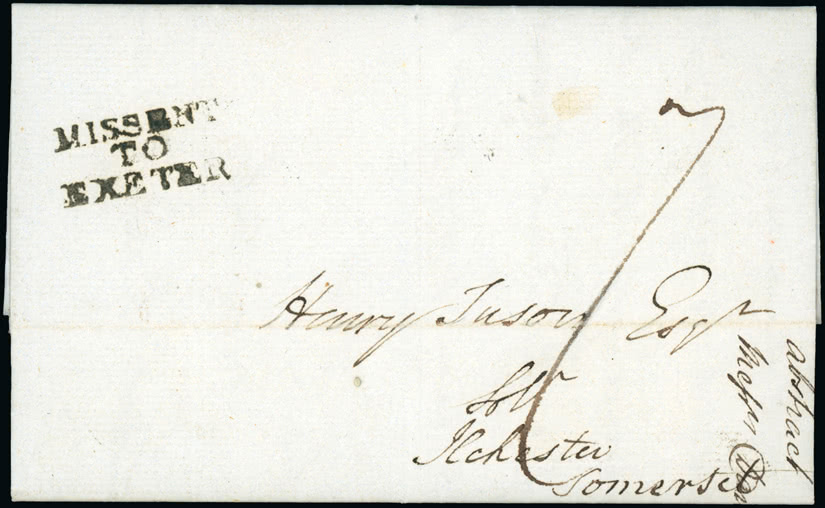 MISSENT
TO
EXETER
7
Henry Tuson Esqr
Solr
Ilchester
Somerset
abstract
Messrs